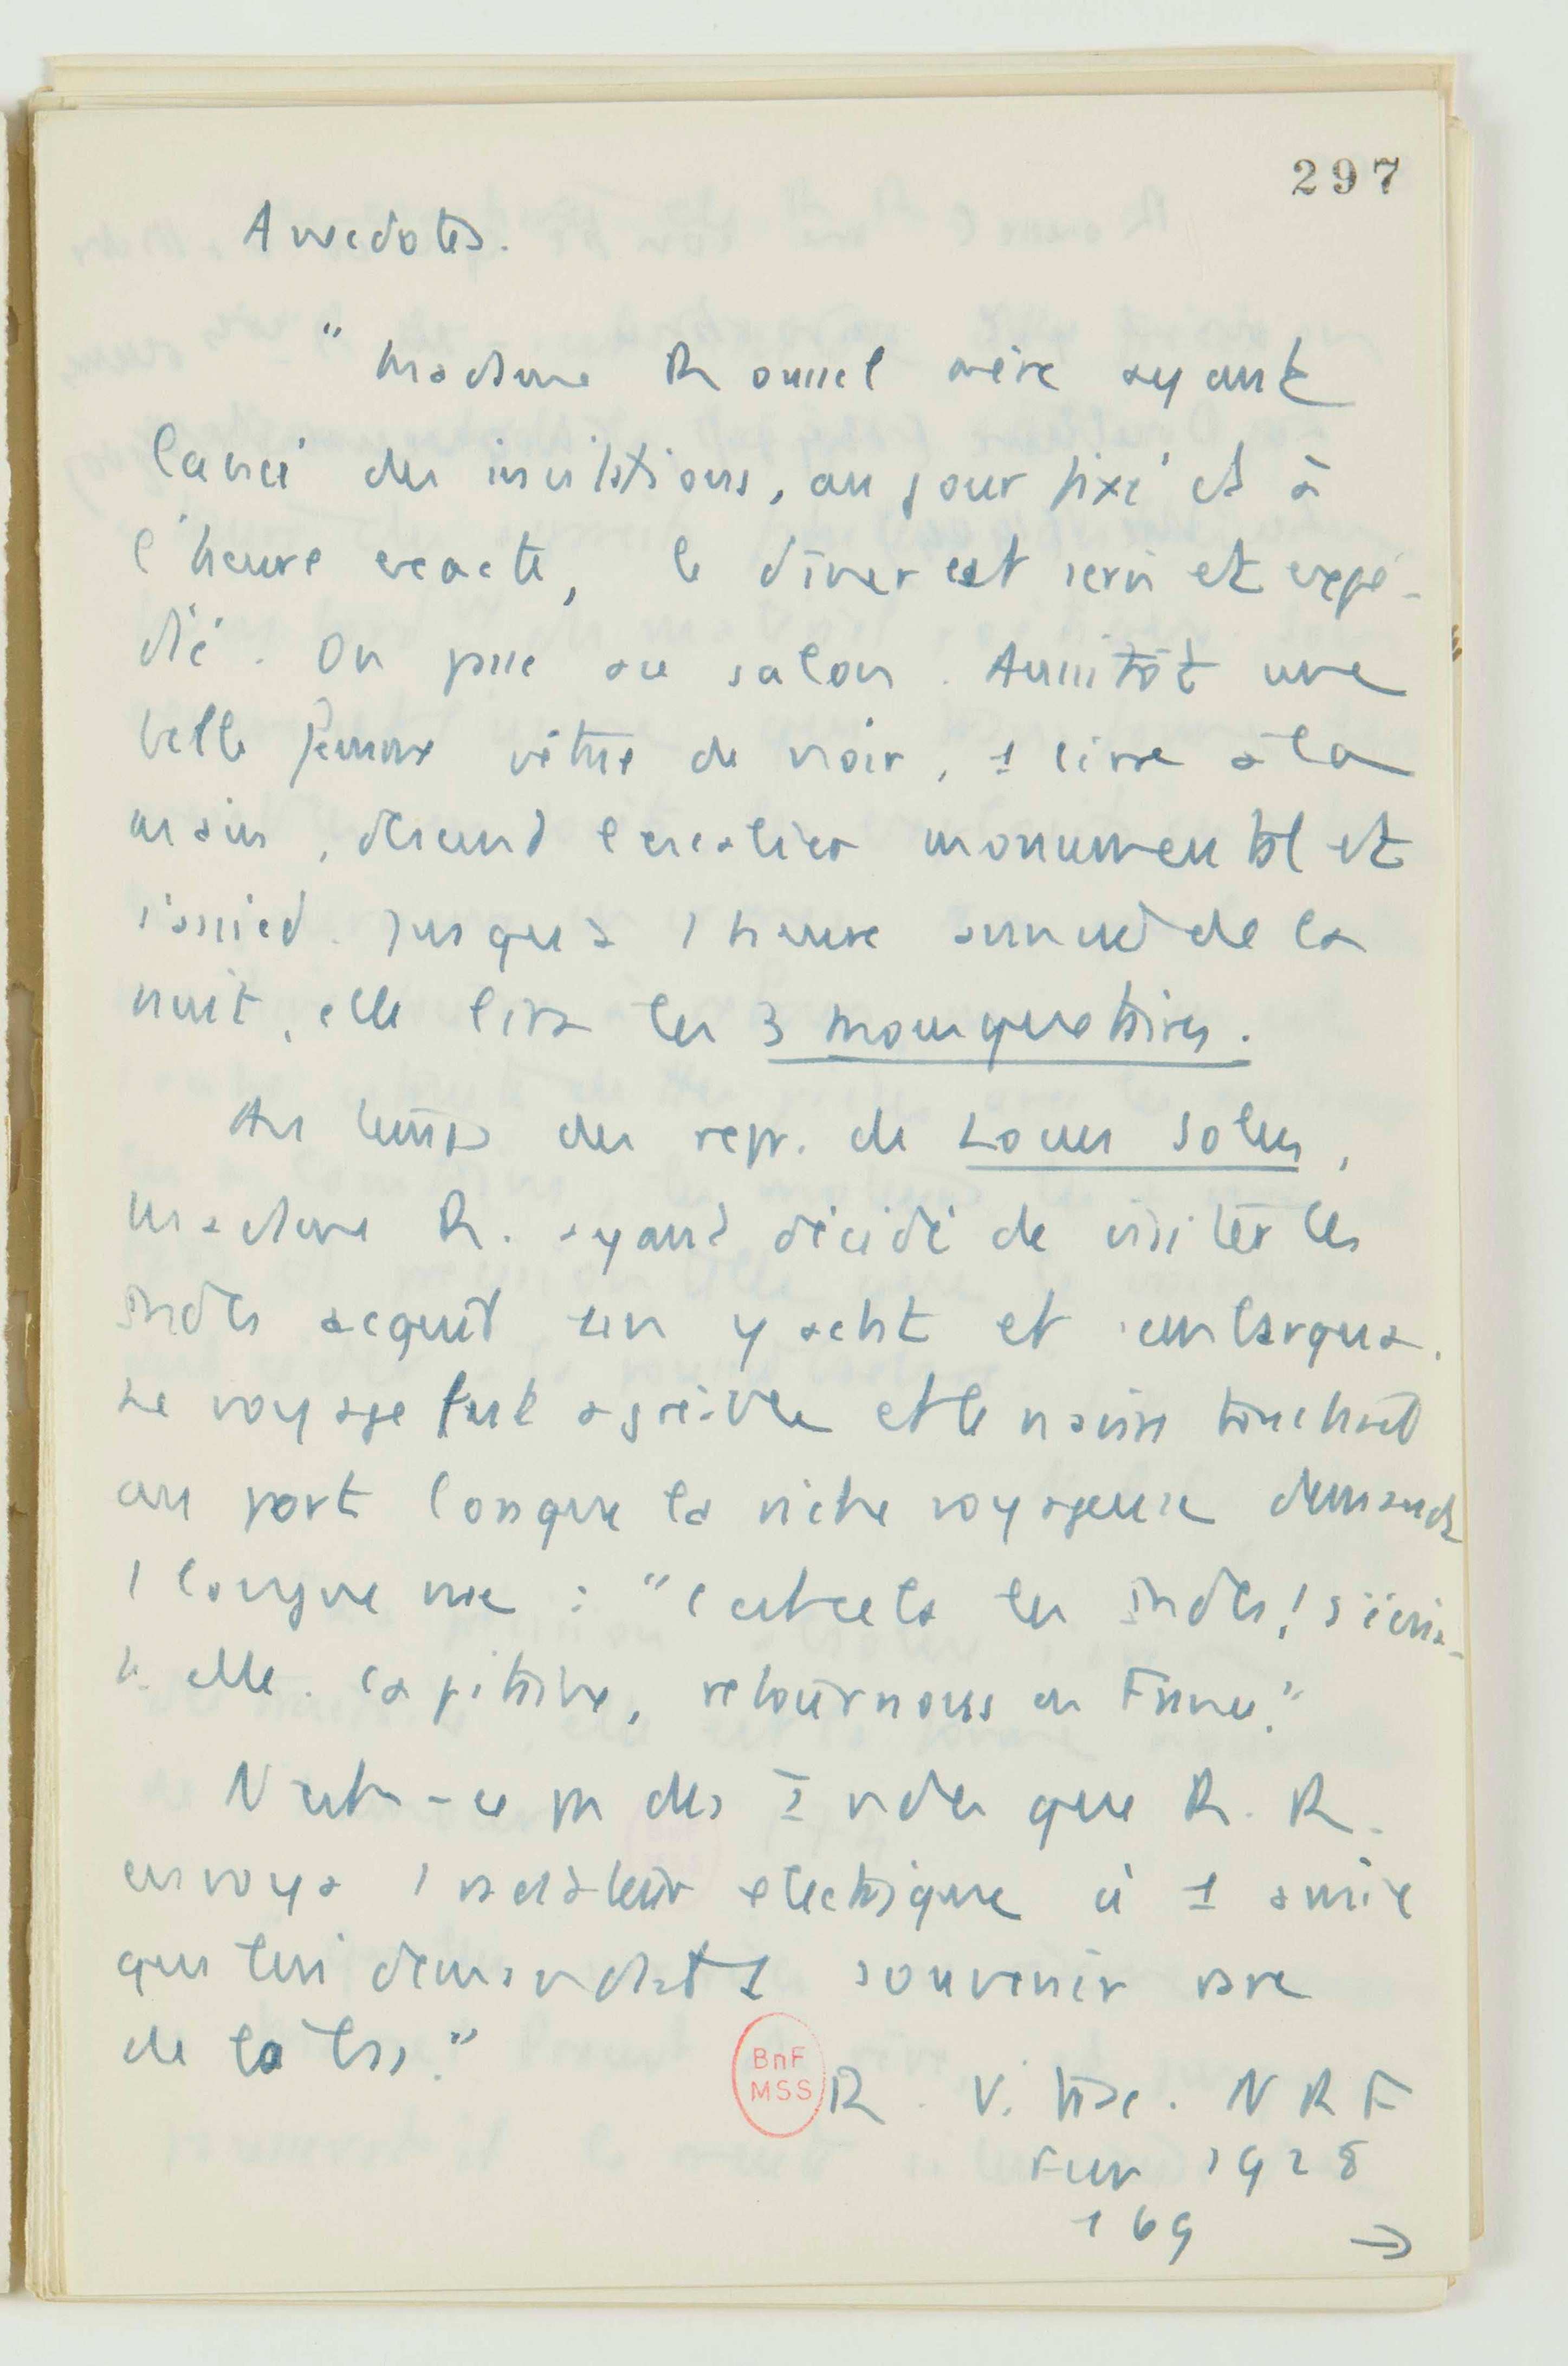 297
Anecdotes.
" Madame Roussel mère ayant
lancé des invitations, au jour fixé et à
l'heure exacte, le dîner est servi et expé-
dié. On passe au salon. Aussitôt une
belle femme vêtue de noir, 1 livre à la
main, descend l'escalier monumental et
s'assied. Jusqu'à 1 heure avancée de la
nuit, elle lira les 3 mousquetaires.
Au temps des repr. de Locus Solus,
Madame R. ayant décidé de visiter les
Indes acquit un yacht et s'embarqua.
Le voyage fut agréable et le navire touchait
au port lorsque la riche voyageuse demanda
1 longue vue : "C'est cela les Indes! s'écria-
t-elle. Capitaine, retournons en France."
N'est-ce pas des Indes que R. R.
envoya 1 radiateur électrique à 1 amie
qui lui demandait 1 souvenir rare
de là bas."
BnF
MSS
R. Vitrac. NRF
Fevr 1928
169 →